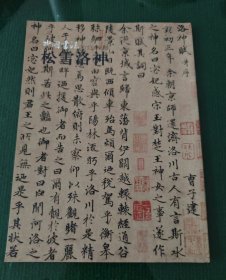 松雪洛神
洛神賦 并序
黄初三年余朝京師還濟洛川古人有言斯水
之神名曰宓妃感宋玉對楚王神女之事遂作
斯賦其詞曰 曹子建
余從京域言歸東藩背伊闕越轘轅經通谷
陵景山日既西傾車殆馬煩爾迺稅駕乎蘅皋
容與乎陽林流眄乎洛川於是精
移神駭忽焉思散俯則未察仰以殊觀睹一麗
畔迺援御者而告之曰爾有覿於彼者
乎彼何人斯若此之豔也御者對曰臣聞河洛之
神名曰宓妃然則君王之所見無迺是乎其狀若